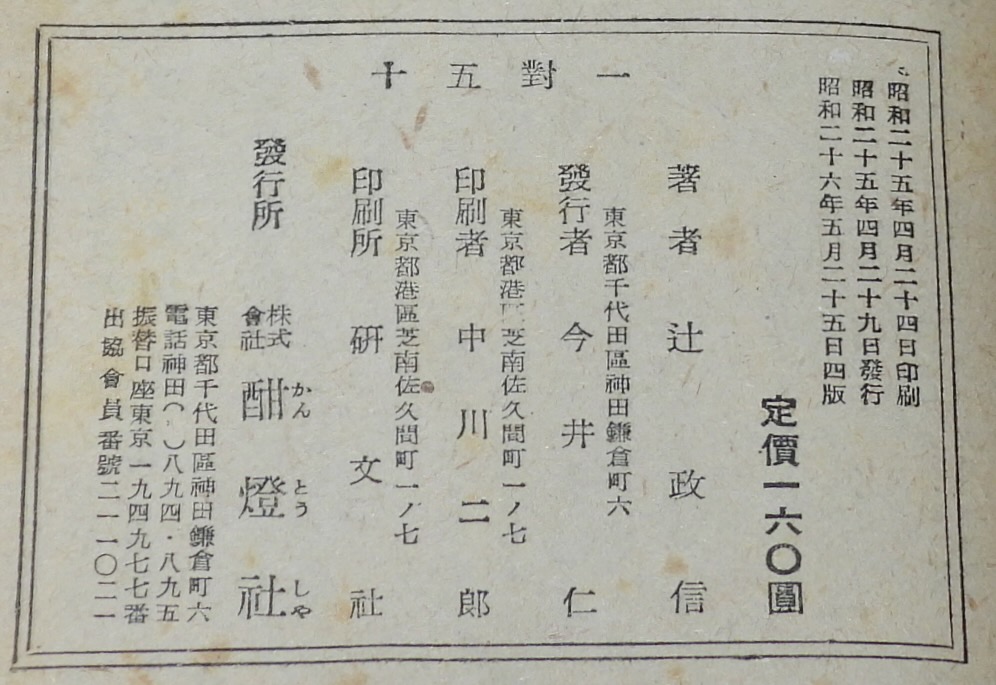 一對五十
昭和二十五年四月二十四日印刷
昭和二十五年四月二十九日發行
昭和二十六年五月二十五日四版
定價一六〇圓
著者 辻政信
東京都千代田區神田鎌倉町六
發行者 今井仁
東京都港區芝南佐久間町一ノ七
印刷者 中川二郎
東京都港區芝南佐久間町一ノ七
印刷所 硏文社
發行所 株式會社 酣燈社
かんとうしや
東京都千代田區神田鎌倉町六
電話神田( )八九四・八九五
振替口座東京一九四九七七番
出協會員番號二一一〇二一